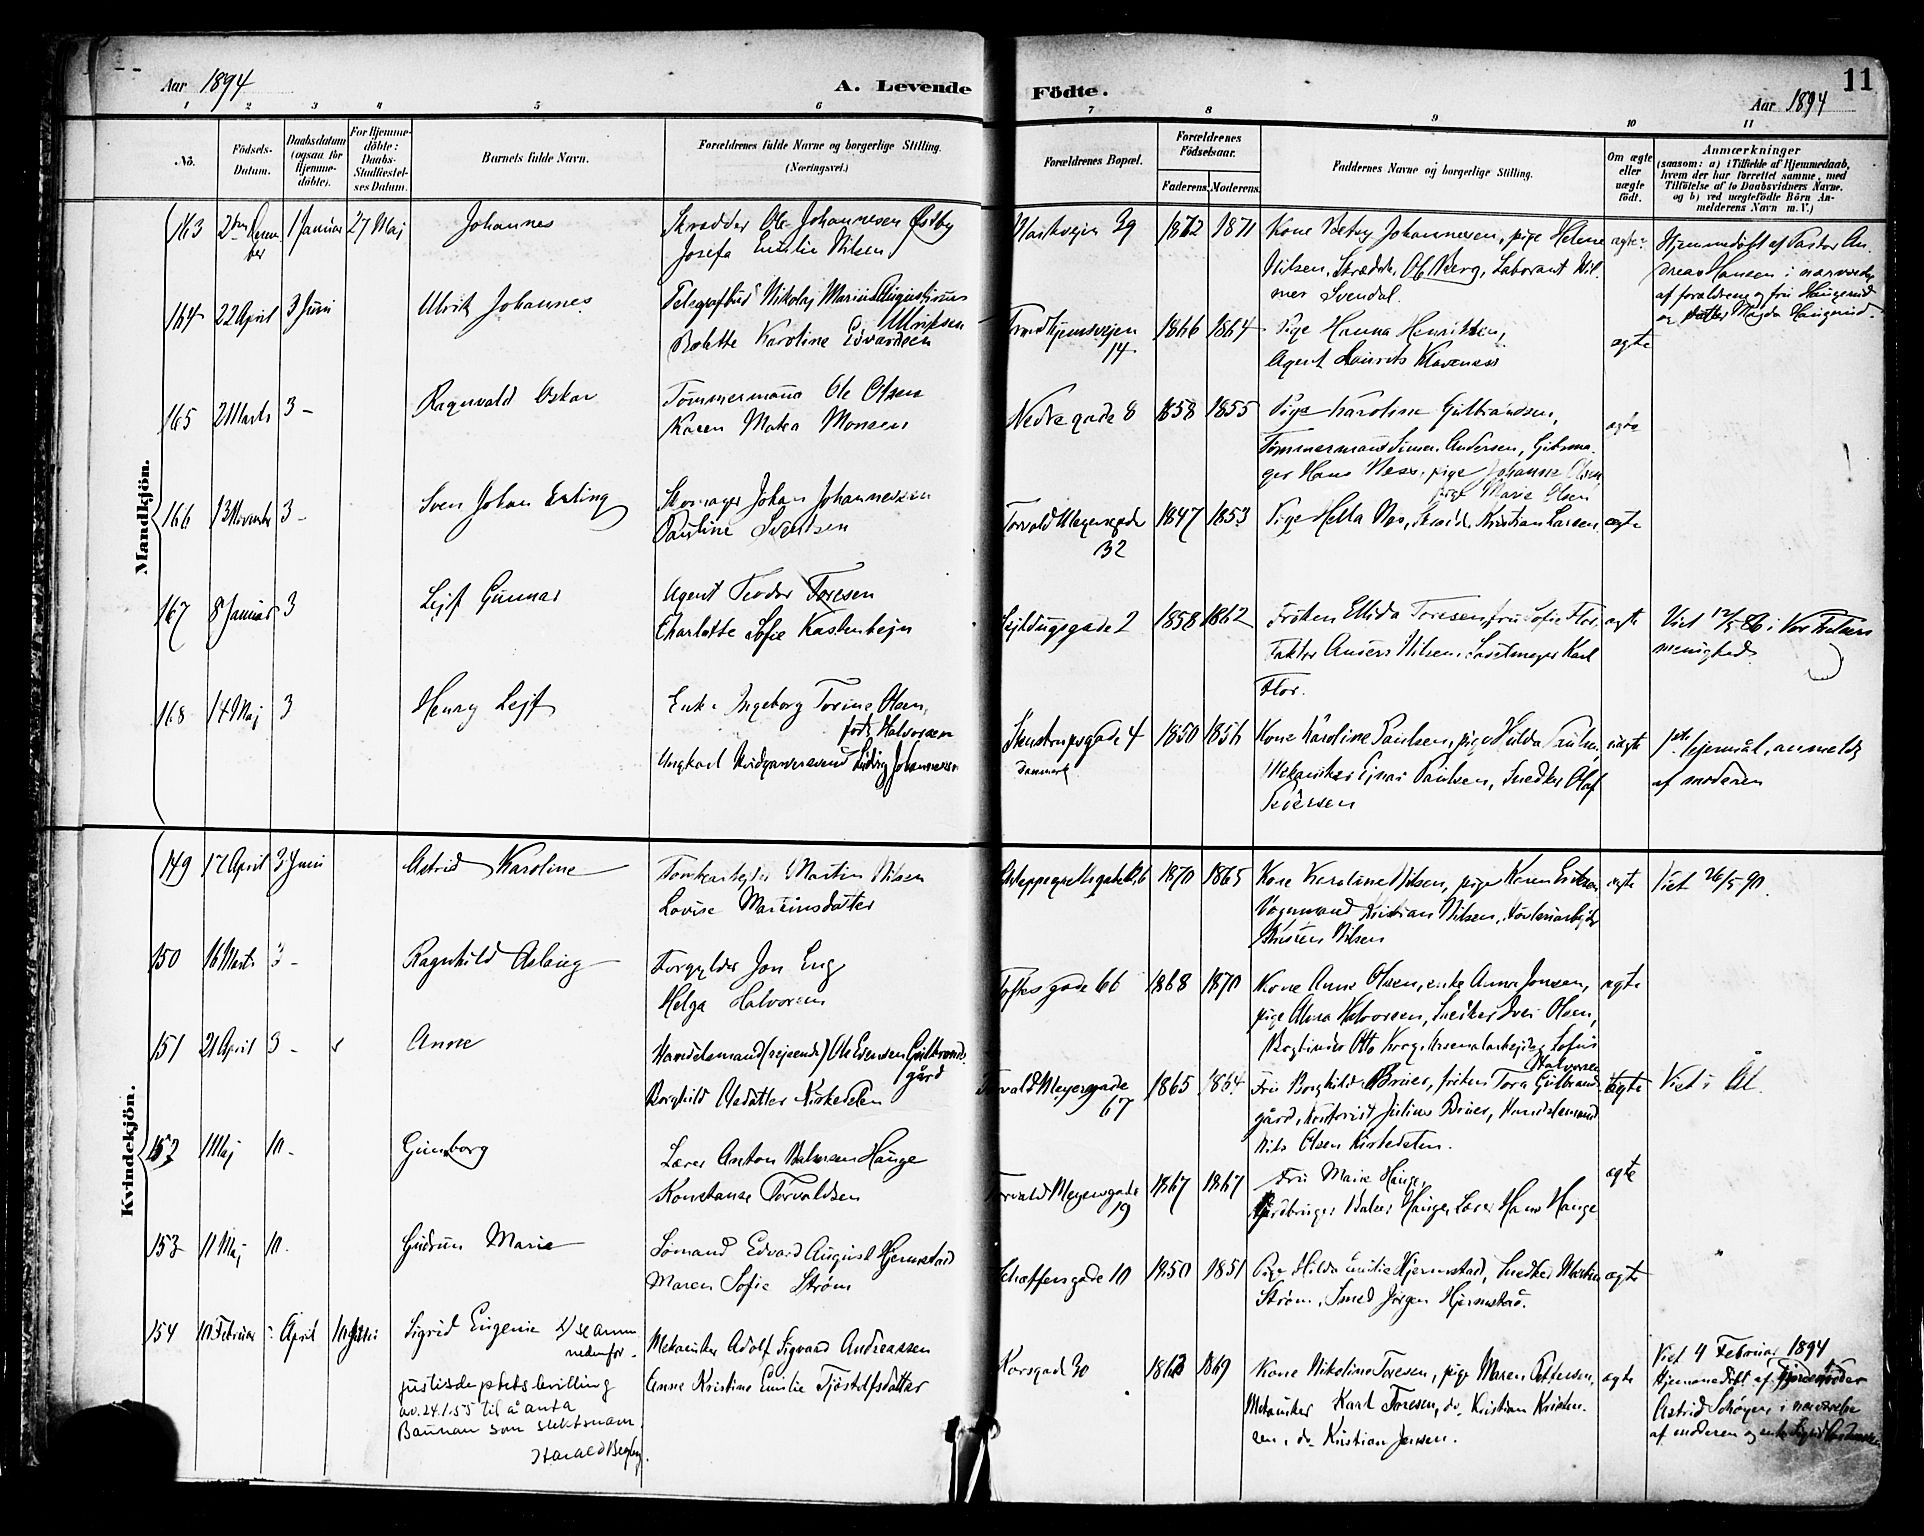 Aar 1894
A. Levende Födte.
Aar 1894
11
1 2 3 4 5 6 7 8 9 10 11
No.
Födsels-
Datum.
Daabsdatum
(ogsaa for
Hjemme-
döbte).
For Hjemme-
döbte:
Daabs-
Stadfæstel-
ses Datum.
Barnets fulde Navn.
Forældrenes fulde Navne og borgerlige Stilling.
(Næringsvei.)
Forældrenes Bopæl.
Forældrenes
Födselsaar.
Faderens.
Moderens.
Faddernes Navne og borgerlige Stilling.
Om ægte
eller
uægte
födt.
Anmærkninger
(saasom: a) i Tilfælde af Hjemmedaab,
hvem der har forrettet samme, med
Tilföielse af to Daabsvidners Navne,
og b) ved uægtefödte Börn An-
melderens Navn m. V.)
Mandkjön.
163 2den Decem-
ber 1 Januar 27 Maj Johannes
Skrædder Ole Johannesen Østby
Josefa Emilie Nilsen
Maridalsvejen 39 1872 1871
Kone Betzy Johannessen, pige Helene
Nilsen, Skrædder Ole Berg, Laborant Hil-
mer Svendal.
ægte
Hjemmedøbt af Pastor An-
dreas Hansen i nærværelse
af forældrene og fru Haugerud
og datter Magda Haugerud.
164 22 April 3 Juni Ulrik Johannes.
Telegrafbud Nikolaj Marius Augustinus
Ulriksen
Bolette Karoline Edvardsen
Trondhjemsvejen
14 1866 1864
Pige Hanna Henriksen,
Agent Laurits Klaveness
ægte
165 2 Marts 3 - Ragnvald Oskar
Tømmermand Ole Olsen
Karen Matea Monsen
Nedre gade 8 1858 1855
Pige Karoline Gulbrandsen,
Tømmermand Simen Andersen, Gibsma-
ger Hans Næss, pige Johanne Olsen,
pige Marie Olsen
ægte
166 13 November 3 - Sven Johan Erling
Skomager Johan Johannessen
Pauline Svendsen
Torvald Meyersgade
32 1847 1853
Pige Helta Nes, Kristian Larsen
ægte
167 8 Januar 3 Lejf Gunnar
Agent Teodor Toresen
Charlotte Sofie Kastenbejn
Seilduksgade 2 1858 1862
Frøken Ellida Toresen, fru Sofie Flor.
Faktor Anders Nilsen, Karl
Flor.
ægte
Viet 12/5 86 i Vor Frelsers
menighed
168 14 Maj 3 Henry Lejf
Enke Ingeborg Torine Olsen,
født Halvorsen
Ungkarl Ludvig Johannessen
Stenstrupsgade 4
Danmark 1850 1856
Kone Karoline Paulsen, pige Hulda Paulsen,
Mekaniker Ejnar Paulsen, Snedker Olaf
Pedersen
uægte
anmeldt
af moderen
Kvindekjön.
149 17 April 3 Juni Astrid Karoline
Martin Nilsen
Lovise Martinsdatter
1870 1865
Kone Karoline Nilsen, pige Karen Eriksen
Vognmand Kristian Nilsen,
Nilsen
ægte
Viet 26/5 90.
150 16 Marts 3 - Ragnhild Aslaug
Forgylder Jon Eng
Helga Halvorsen
Toftes gade 66 1868 1870
Kone Anne Olsen, enke Anne Jonsen,
pige Alma Halvorsen, Snedker Iver Olsen,
Bogbinder Otto Korg, Arsenalarbejder Lofus
Halvorsen
ægte
151 21 April 3 - Anne
Handelsmand (rejsende) Ole Evensen Gulbrands
gård
Borghild Olsdatter Kirkedelen
Torvald Meyersgade
67 1865 1864
Fru Borghild Bruer, frøken Tora Gulbrands
gård, Julius Bruer, Handelsmand
Nils Olsen Kirkedelen.
ægte
Viet i Ål
152 1 Maj 10. Gunborg
Lærer Anton Halvorsen Hauge
Konstanse Torvaldsen
Torvald Meyersgade
19 1867 1867
Fru Marie Hauge,
Gårdbruger Hauge, Lærer Hans Hauge
ægte
153 11 Maj 10. Gudrun Marie
Sømand Edvard August Hjermstad
Maren Sofie Strøm
Schaffersgade 10 1850 1851
Pige Hilda Emilie Hjermstad, Snedker Martin
Strøm, Smed Jørgen Hjermstad.
ægte
154 10 Februar April 10 Juni Sigrid Eugenie 1/ se anm
nedenfor.
justisdeptets bevilling
av. 24.1.55 til å anta
Bauman som slektsnavn
Harald Begby
Mekaniker Adolf Sigvard Andreassen
Anne Kristine Emilie Tjøstolfsdatter
Korsgade 30 1862 1869
Kone Nikoline Toresen, pige Maren Pettersen,
Mekaniker Karl Toresen, do. Kristian Kristen-
sen, do. Kristian Jensen.
ægte
Viet 4 Februar 1894
Hjemmedøbt af Jordemoder
Astrid Schøyen i nærværelse
af moderen og enke Sigrid